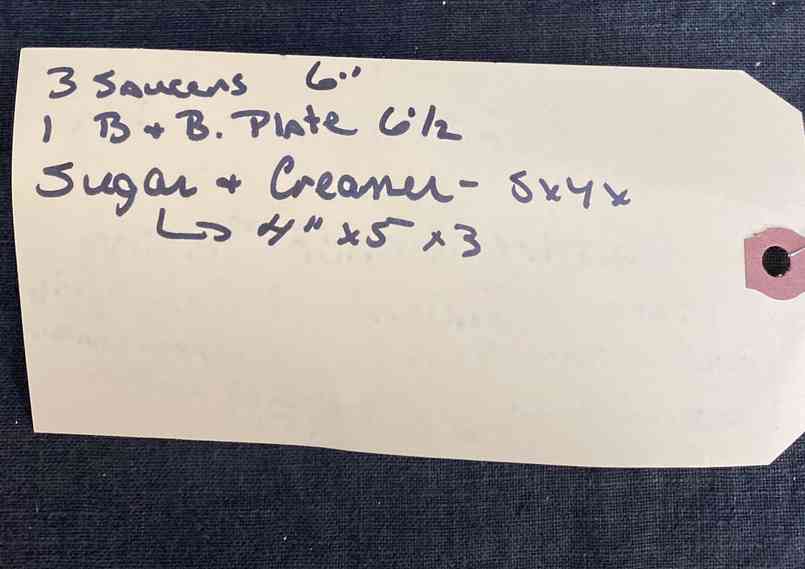 3 Saucers 6"
1 B + B. Plate 6 1/2
Sugar + Creamer - 5x4x
↳ 4" x5 x3